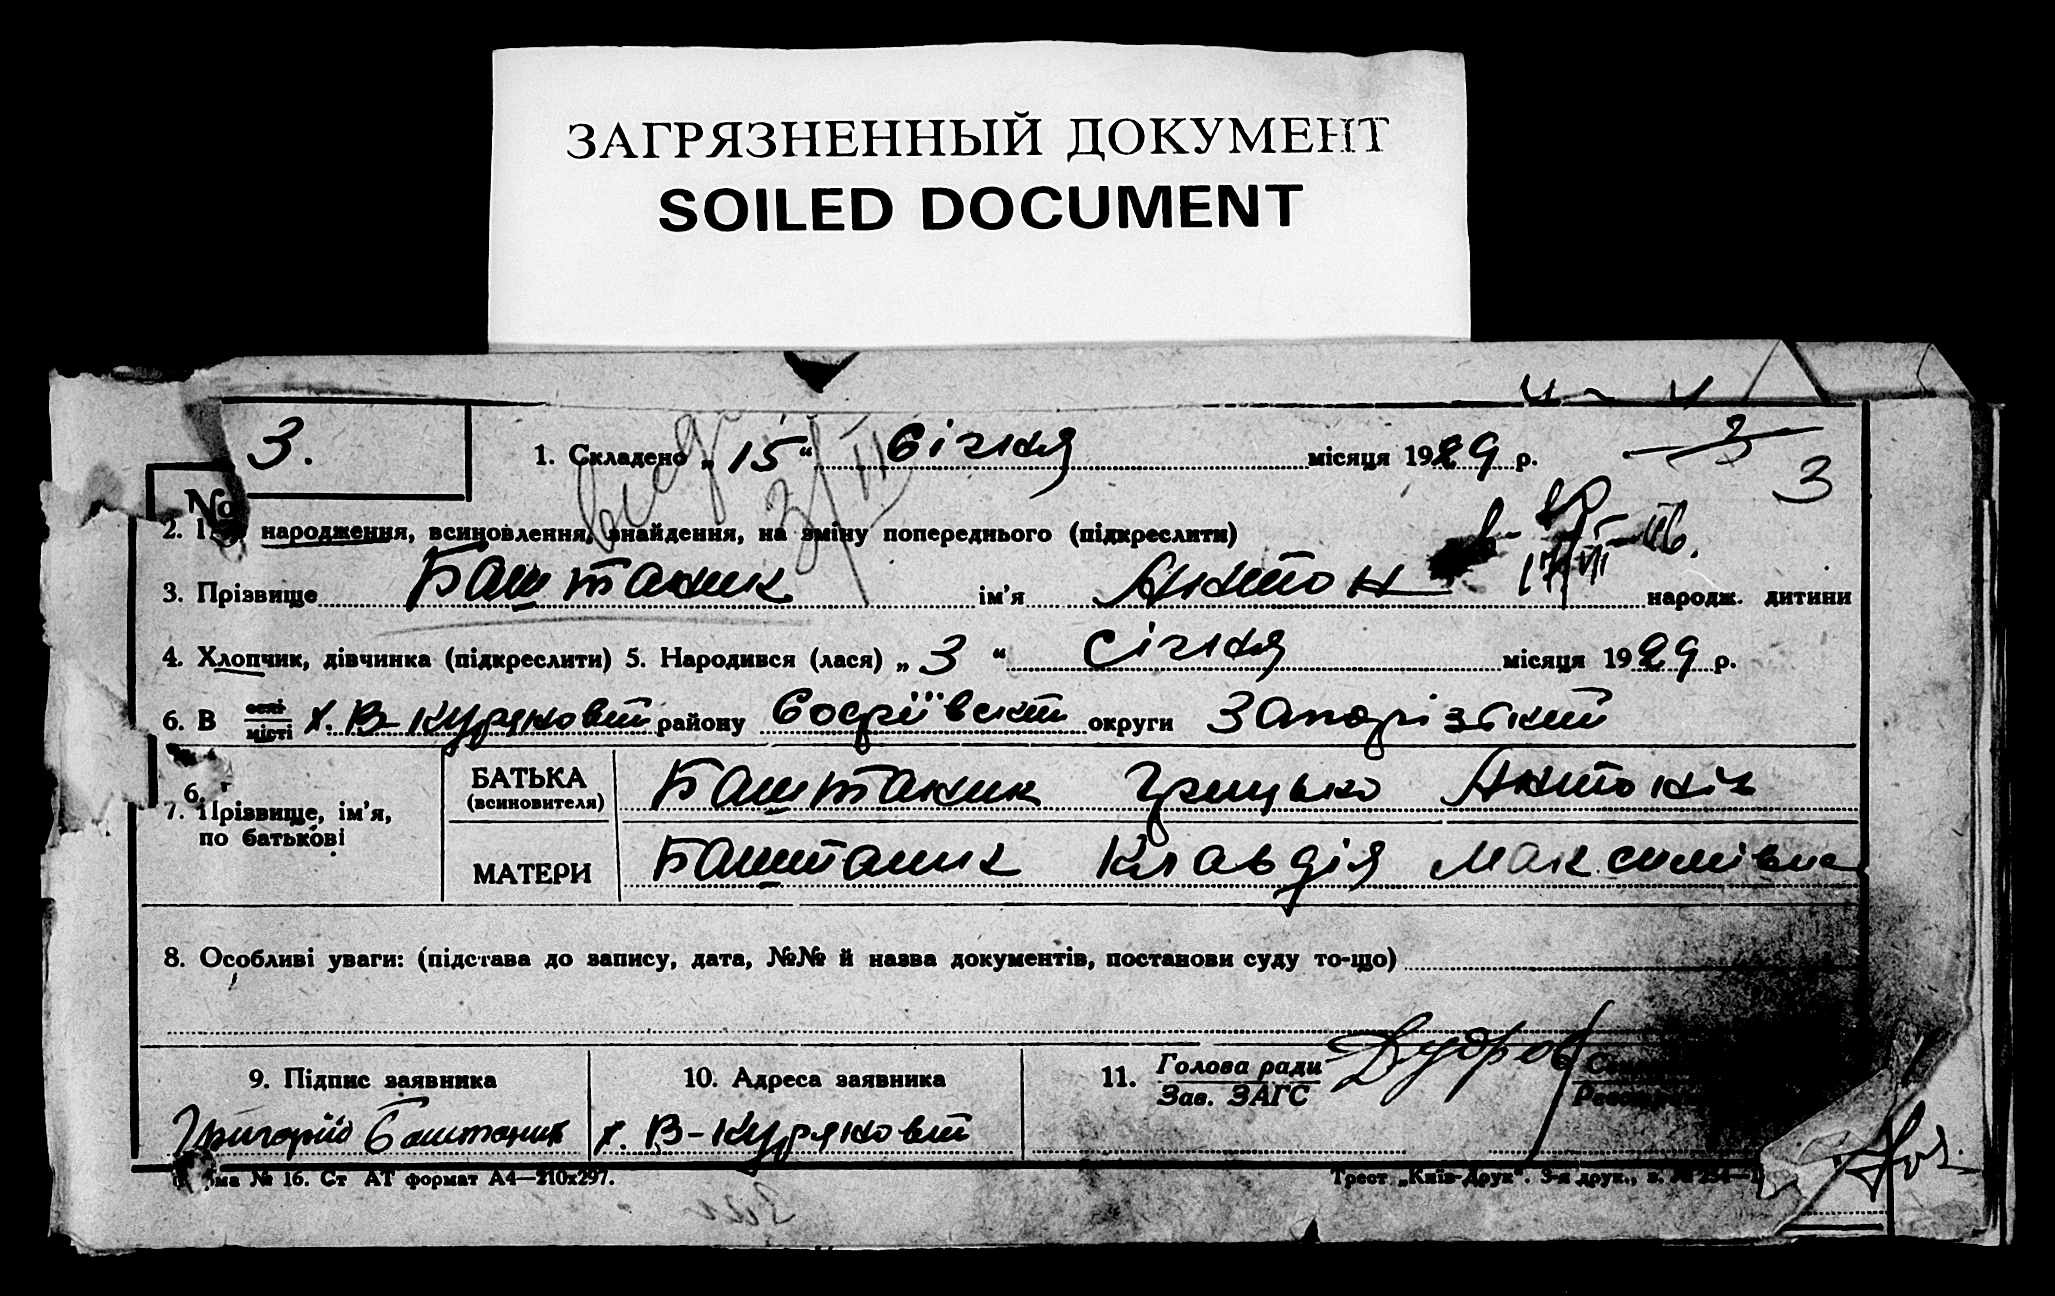 ЗАГРЯЗНЕННЫЙ ДОКУМЕНТ
SOILED DOCUMENT
3.
№
1. Складено „15“ Січня місяця 1929 р.
3
3
2. народження, всиновлення, знайдення, на зміну попереднього (підкреслити)
3. Прізвище Баштаник ім'я Антон народж. дитини
4. Хлопчик, дівчинка (підкреслити) 5. Народився (лася) „3“ січня місяця 1929 р.
6. В селі місті х. В-Куряновій району Софіївский округи Запорізький
7. Прізвище, ім'я, по батькові
БАТЬКА (всиновителя) Баштаник Грицько Антоніч
МАТЕРИ Баштаник Клавдія Максимівна
8. Особливі уваги: (підстава до запису, дата, №№ й назва документів, постанови суду то-що)
9. Підпис заявника
10. Адреса заявника
11. Голова ради
Зав. ЗАГС
Григорій Баштаник
х. В-Куряновій
№ 16. Ст АТ формат А4—210х297.
Трест „Київ-Друк“. 3-я друк., з. № 254—1